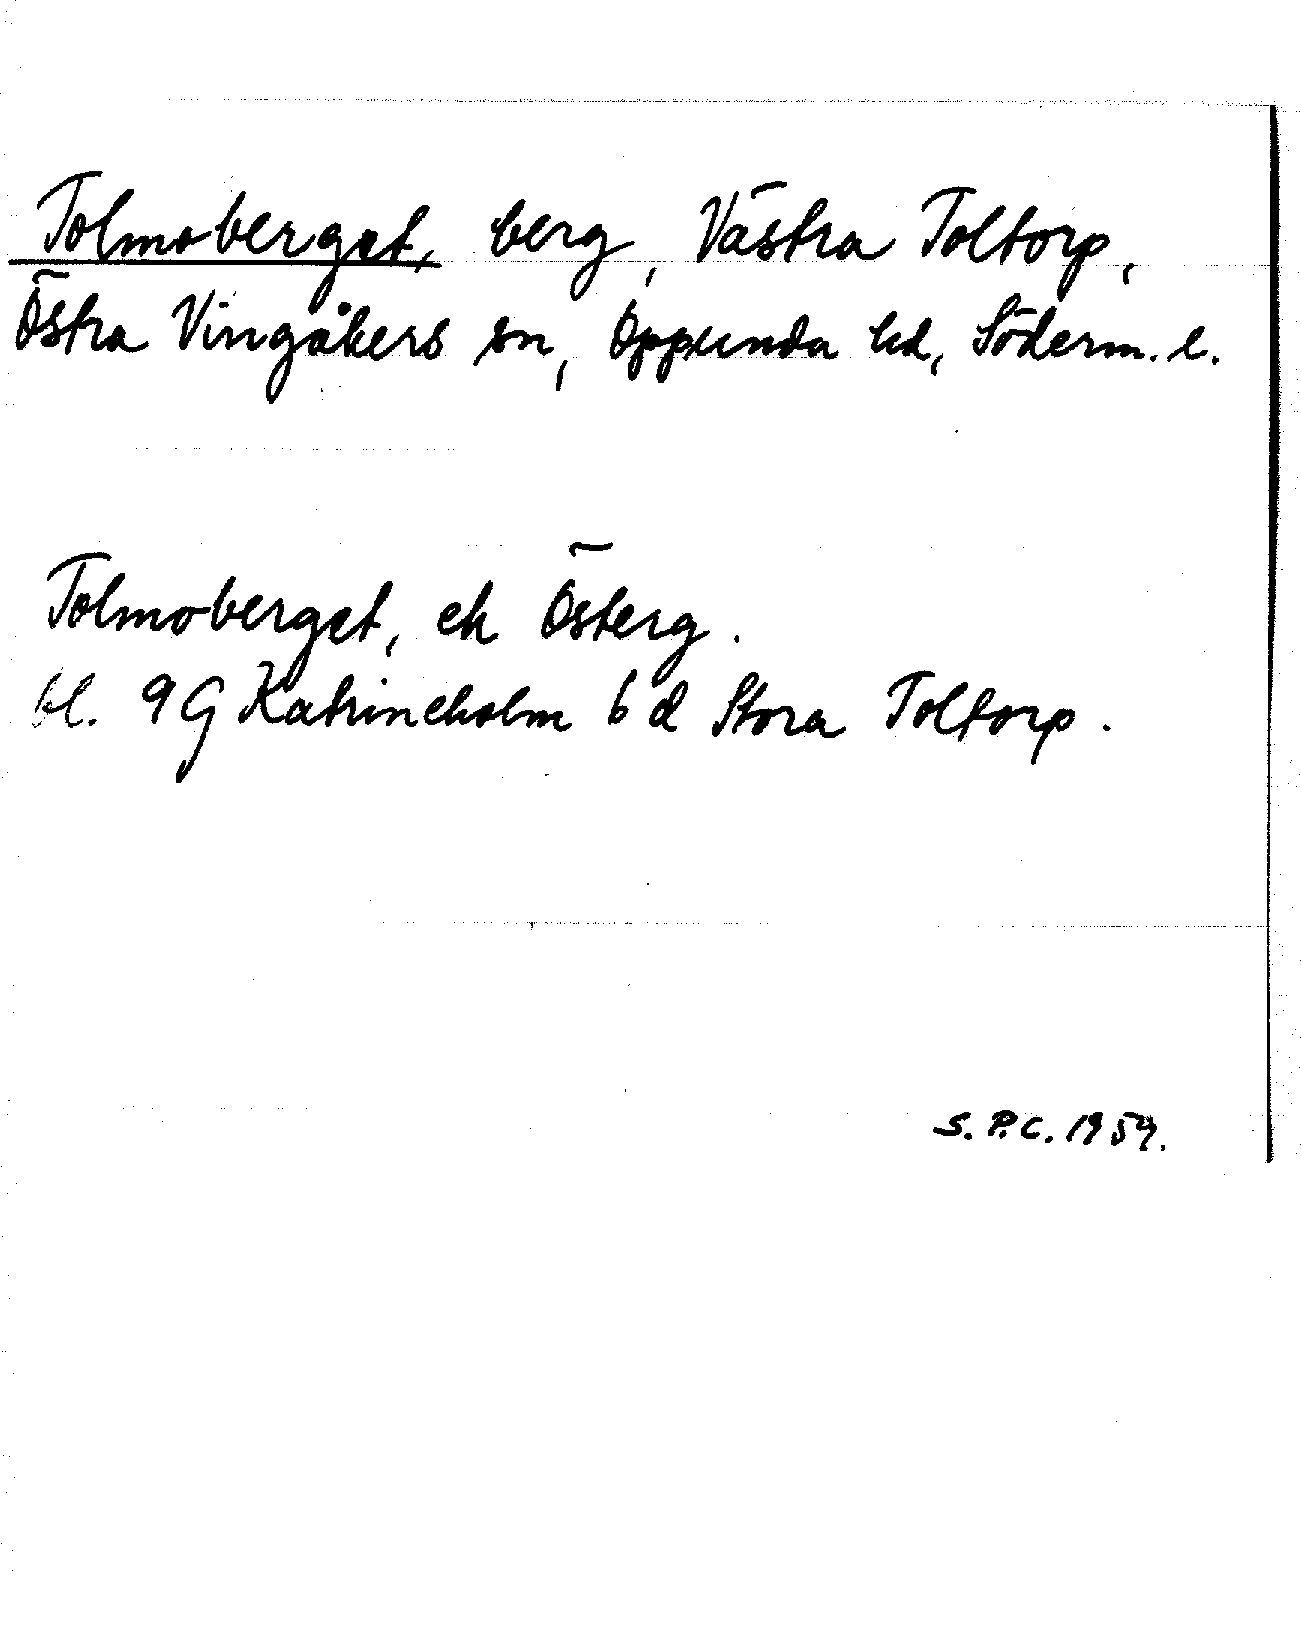 Tolmoberget, berg, Västra Toltorp,
Östra Vingåkers sn, Oppunda hd, Söderm. l.
Tolmoberget, ek Österg.
bl. 9G Katrineholm 6 d Stora Toltorp.
S.P.C. 1959.